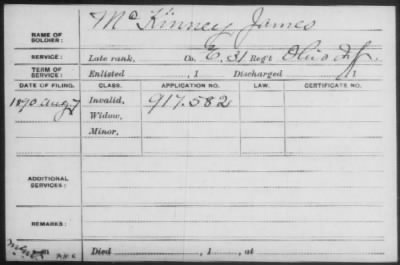 NAME OF SOLDIER: McKinney James
SERVICE: Late rank, Co. E, 31 Regt Ohio Inf.
TERM OF SERVICE: Enlisted , 1 Discharged , 1
DATE OF FILING. CLASS. APPLICATION NO. LAW. CERTIFICATE NO.
1890 Aug 7 Invalid, 917.582
Widow,
Minor,
ADDITIONAL SERVICES:
REMARKS:
Died , 1 , at